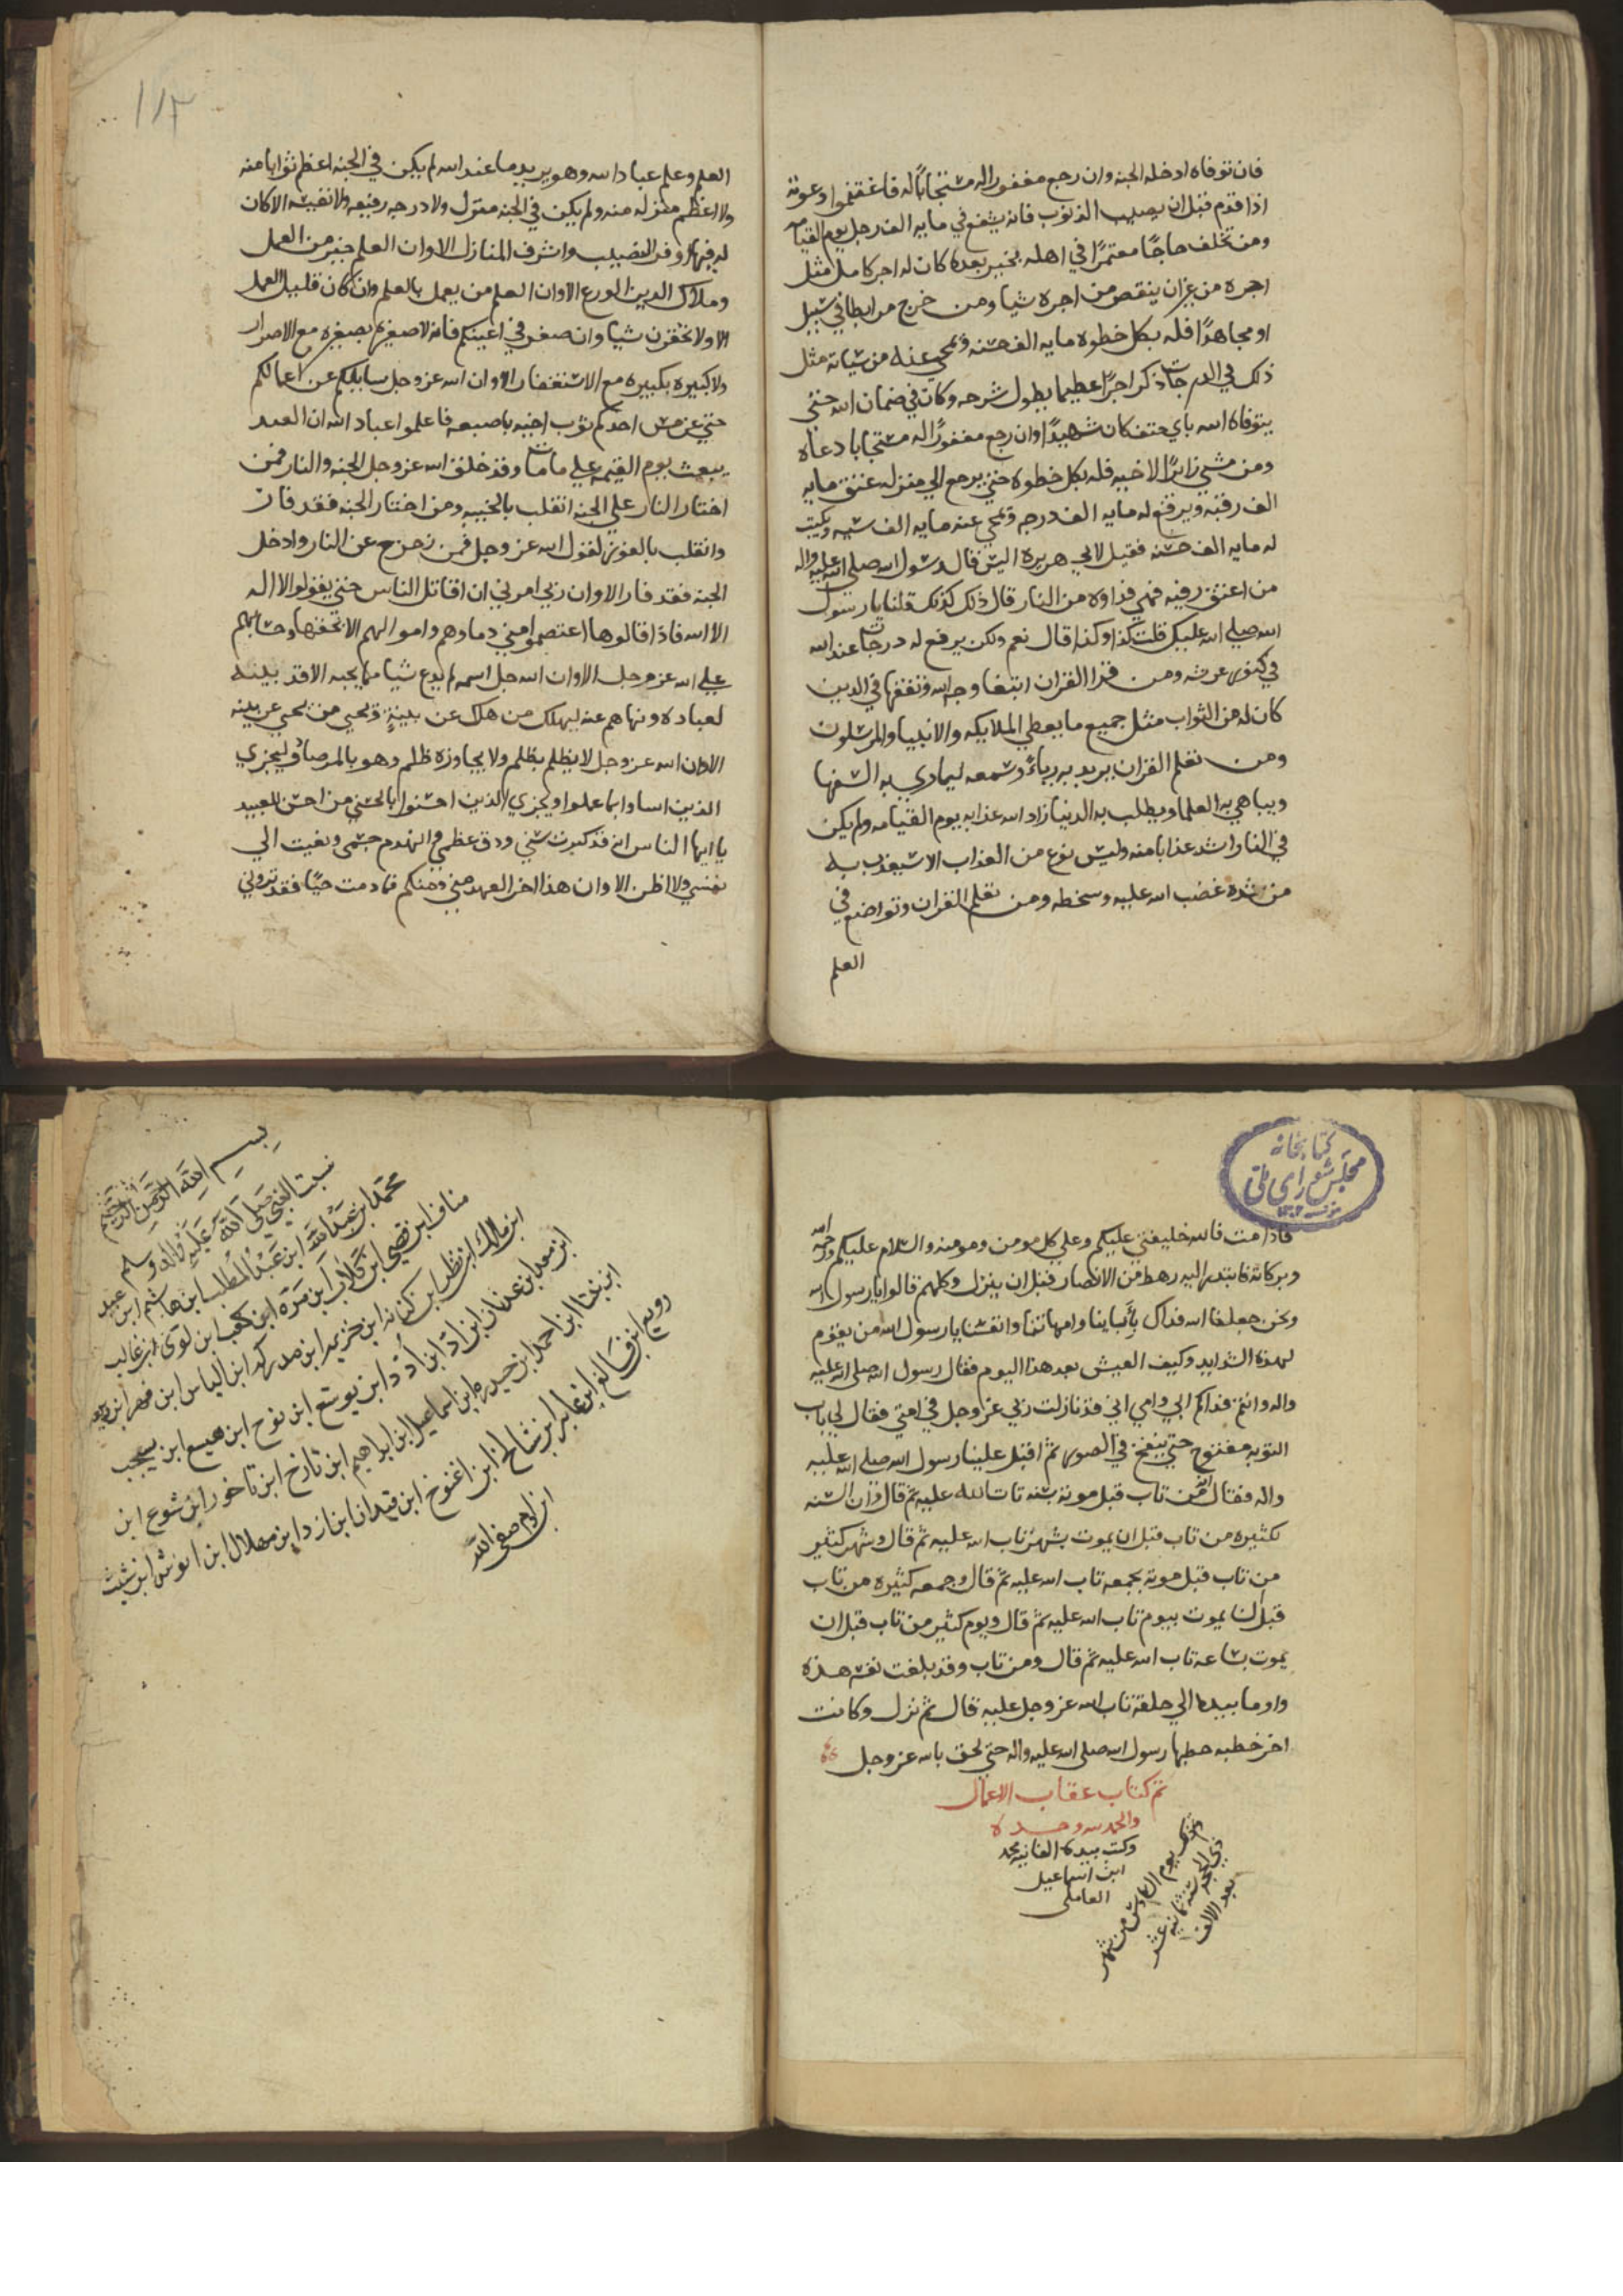 فان توفاه ادخله الجنه وان رجع رجع مغفورا له مستجابًا له فاغتنموا دعوته
اذا قدم قبل ان يصيب الذنوب فانه يشفع في مايه الف رجل يوم القيامه
ومن تخلف حاجًا معتمرًا في اهله بخير بعده كان له اجر كامل مثل
اجره من غير ان ينقص من اجره شيا ومن خرج مرابطا في سبيل
او مجاهدًا فله بكل خطوه مايه الف حسنه ويمحي عنه من سياته مثل
ذلك في الدرجات ذكر اجرًا عظيما يطول شرحه وكان في ضمان الله حتي
يتوفاه الله باي حتف كان شهيدًا وان رجع مغفورًا له مستجابا دعاه
ومن مشي زايرًا لاخيه فله بكل خطوه حتي يرجع الي منزله عتق مايه
الف رقبه ويرفع له مايه الف درجه ويمحي عنه مايه الف سيه ويكتب
له مايه الف حسنه فقيل لابي هريره اليس قال رسول الله صلي الله عليه واله
من اعتق رقبه فهي فداوه من النار قال ذلك كذلك قلنا يا رسول
الله صلي الله عليك قلت كذا وكذا قال نعم ولكن يرفع له درجات عند الله
في كنوز عرشه ومن قرا القران ابتغا وجه الله وتفقها في الدين
كان له من الثواب مثل جميع ما يعطي الملايكه والانبيا والمرسلون
ومن تعلم القران يريد به رياءً وسمعه ليماري به السفها
ويباهي به العلما ويطلب به الدنيا زاد الله عذابه يوم القيامه ولم يكن
في النار اشد عذابا منه وليس نوع من العذاب الا سيعذب به
من شده غضب الله عليه وسخطه ومن تعلم القران وتواضع في
العلم
١١٣
العلم وعلم عباد الله وهو يريد ما عند الله لم يكن في الجنه اعظم ثوابا منه
ولا اعظم منزله منه ولم يكن في الجنه منزل ولا درجه رفيعه ولا نفيسه الا كان
له فيها اوفر النصيب واشرف المنازل الا وان العلم خير من العمل
وملاك الدين الورع الا وان العلم من يعمل بالعلم وان كان قليل العمل
الا ولا تحقرن شيا وان صغر في اعينكم فانه لا صغيره بصغيره مع الاصرار
ولا كبيره بكبيره مع الاستغفار الا وان الله عز وجل سايلكم عن اعمالكم
حتي عن مس احدكم ثوب اخيه باصبعه فاعلموا عباد الله ان العبد
يبعث يوم القيمه علي ما مات وقد خلق الله عز وجل الجنه والنار فمن
اختار النار علي الجنه انقلب بالخيبه ومن اختار الجنه فقد فاز
وانقلب بالفوز لقول الله عز وجل فمن زحزح عن النار وادخل
الجنه فقد فاز الا وان ربي امرني ان اقاتل الناس حتي يقولوا لا اله
الا الله فاذا قالوها اعتصموا مني دماوهم واموالهم الا بحقها وحسابهم
علي الله عز وجل الا وان الله جل اسمه لم يدع شيا مما يحبه الا قد بينه
لعباده ونهاهم عنه ليهلك من هلك عن بينةٍ ويحيي من يحيي عن بينه
الا وان الله عز وجل لا يظلم بظلم ولا يجاوزه ظلم وهو بالمرصاد ليجزي
الذين اساوا بما عملوا ويجزي الذين احسنوا بالحسني من احسن للعبيد
يا ايها الناس انه قد كبرت سني ودق عظمي وانهدم جسمي ونعيت الي
نفسي ولا اظن الا وان هذا اخر العهد مني ومنكم فما دمت حيًا فقد تروني
كتابخانه
مجلس شورای ملی
فاذا مت فالله خليفتي عليكم وعلي كل مومن ومومنه والسلام عليكم ورحمه الله
وبركاته فابتدر اليه رهط من الانصار قبل ان ينزل وكلهم قالوا يا رسول الله
ونحن جعلنا الله فداك بأبايناوامهاتنا وانفسنا يا رسول الله من يقوم
لهذه الشدايد وكيف العيش بعد هذا اليوم فقال رسول الله صلي الله عليه
واله وانتم فداكم ابي وامي اني قد نازلت ربي عز وجل في امتي فقال لي باب
التوبه مفتوح حتي ينفخ في الصور ثم اقبل علينا رسول الله صلي الله عليه
واله فقال انه من تاب قبل موته بسنه تاب الله عليه ثم قال وان السنه
لكثيره من تاب قبل ان يموت بشهر تاب الله عليه ثم قال وشهر كثير
من تاب قبل موته بجمعه تاب الله عليه ثم قال وجمعه كثيره من تاب
قبل ان يموت بيوم تاب الله عليه ثم قال ويوم كثير من تاب قبل ان
يموت بساعه تاب الله عليه ثم قال ومن تاب وقد بلغت نفسه هذه
واوما بيده الي حلقه تاب الله عز وجل عليه قال ثم نزل وكانت
اخر خطبه خطبها رسول الله صلي الله عليه واله حتي لحق بالله عز وجل
تم كتاب عقاب الاعمال
والحمد لله وحده
وكتب بيده الفانيه محمد
ابن اسماعيل
العاملي
وذلك يوم السادس من شهر
ذي الحجه سنه ثمانيه عشر
بعد الالف
بسم الله الرحمن الرحيم
نسبت النبي صلي الله عليه واله وسلم
محمد ابن عبد الله ابن عبد المطلب ابن هاشم ابن عبد
مناف ابن قصي ابن كلاب ابن مره ابن كعب ابن لوى ابن غالب
ابن مالك ابن نظر ابن كنانه ابن خزيمه ابن مدركه ابن الياس ابن
ابن معد ابن عدنان ابن ادّ ابن أدد ابن يوسع ابن نوح ابن هميسع ابن يسجب
ابن احمد ابن حيدره ابن اسماعيل ابن ابراهيم ابن تارخ ابن تاخور ابن شوع ابن
ابن فالغ ابن عابر ابن شالخ ابن اخنوخ ابن قيدان ابن ازد ابن مهلال ابن انوش ابن شيث
ابن ادم صفي الله